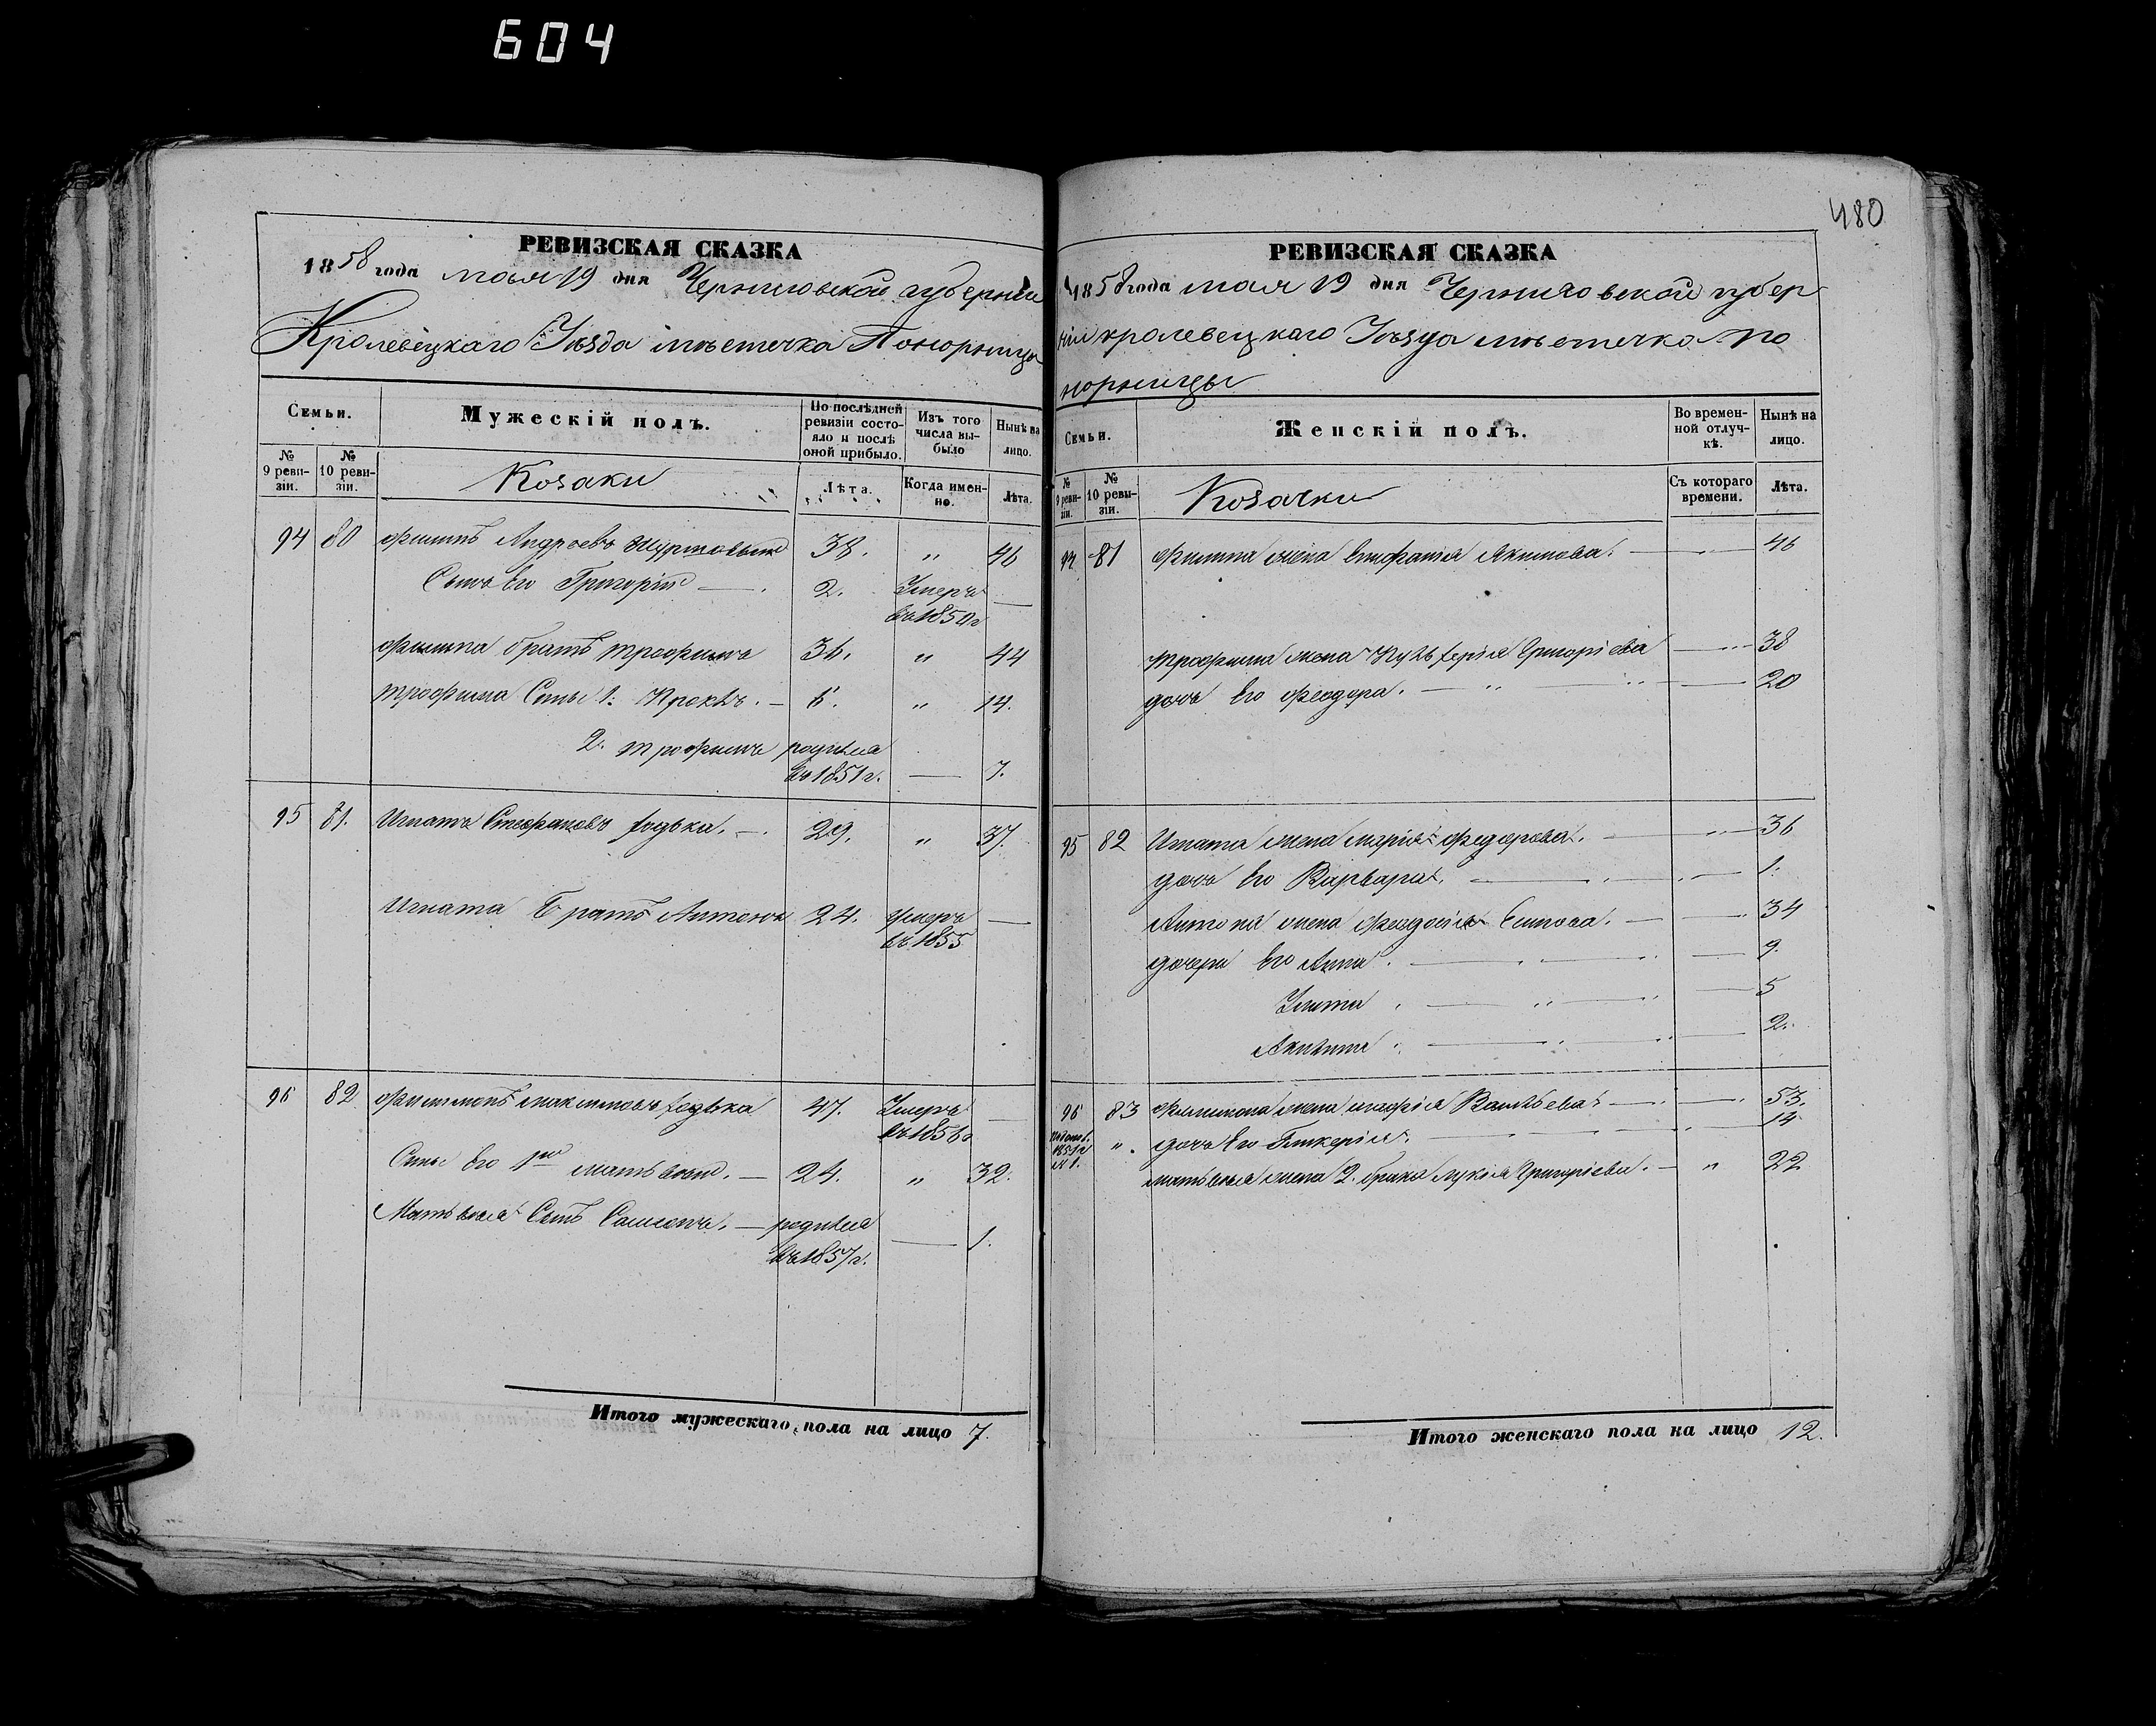 604
480
РЕВИЗСКАЯ СКАЗКА
1858 года мая 19 дня Черниговской губерніи
Кролевецкаго Уѣзда мѣстечка Понорница
Семьи.
Мужескій полъ.
По послѣдней ревизіи состояло и послѣ оной прибыло.
Изъ того числа выбыло
Нынѣ на лицо.
№ 9 ревизіи.
№ 10 ревизіи.
Козаки
Лѣта.
Когда именно.
Лѣта.
94 80 Филипъ Андреевъ 38. „ 46
Сынъ его Григорій — 2. Умеръ —
въ 1850 г
Филипа братъ Трофимъ 36. „ 44
Трофима Сыны 1: — 6. „ 14.
2. Трофимъ родился
въ 1851 г. — 7.
95 81. Игнатъ Стефановъ — 29. „ 37.
Игната Братъ Антонъ 24. умеръ —
въ 1855
96 82 Филимонъ Максимовъ 47. Умеръ —
въ 1856
Сынъ его 1й Матвѣй. — 24. „ 32.
Матвѣя Сынъ Самсонъ. — родился
въ 1857 г. — 1.
Итого мужескаго пола на лицо 7.
РЕВИЗСКАЯ СКАЗКА
1858 года мая 19 дня Черниговской губер
ніи кролевецкаго Уѣзда мѣстечка По
норницы
Семьи.
Женскій полъ.
Во временной отлучкѣ.
Нынѣ на лицо.
№ 9 ревизіи.
№ 10 ревизіи.
Козачки
Съ котораго времени.
Лѣта.
94 81 Филипа жена Акимова. — 46
Трофима жена Григоріева — 38
дочь его Феодора. — 20
95 82 Игната жена Марія Федорова. — 36
дочь его Варвара. — 1.
Антона жена Феодосія — 34
дочери его Анна. — 9.
Улита — 5
Акилина — 2.
96 83 Филимона жена — 53.
„ дочь его Гликерія. — 14.
Матвѣя жена 2. брака Лукія Григоріева. — „ 22
Итого женскаго пола на лицо 12.